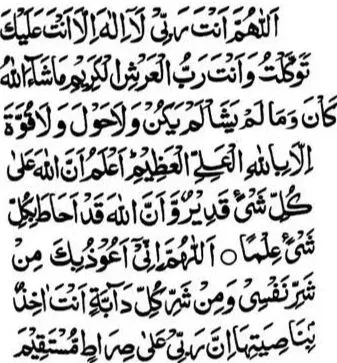 اَللّٰهُمَّ اَنْتَ رَبِّیْ لَاۤ اِلٰهَ اِلَّا اَنْتَ عَلَیْكَ
تَوَكَّلْتُ وَاَنْتَ رَبُّ الْعَرْشِ الْكَرِیْمِ مَاشَآءَ اللهُ
كَانَ وَمَا لَمْ یَشَأْ لَمْ یَكُنْ وَلَاحَوْلَ وَلَا قُوَّةَ
اِلَّا بِاللهِ الْعَلِیِّ الْعَظِیْمِ اَعْلَمُ اَنَّ اللهَ عَلٰی
كُلِّ شَیْءٍ قَدِیْرٌ وَّ اَنَّ اللهَ قَدْ اَحَاطَ بِكُلِّ
شَیْءٍ عِلْمًا ○ اَللّٰهُمَّ اِنِّیْ اَعُوْذُبِكَ مِنْ
شَرِّ نَفْسِیْ وَمِنْ شَرِّ كُلِّ دَآبَّةٍ اَنْتَ اٰخِذٌ
بِنَاصِیَتِهَا اِنَّ رَبِّیْ عَلٰی صِرَاطٍ مُّسْتَقِیْمٍ